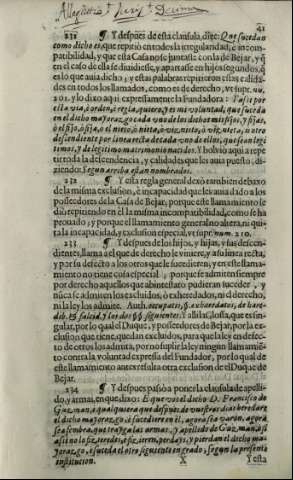 41
231 ¶ Y despues de esta clausula, dize: Que sucedan
como dicho es, que repitiò en todos la irregularidad, è incom-
patibilidad, y que esta Casa no se juntasse con la de Bejar, y q̃
en el caso de ella se diuidiesse, y apartasse en hijos segundos, q̃
es lo que auia dicho; y estas palabras repitieron essas calida-
des en todos los llamados, como es de derecho, vt supr. nu.
201. y lo dixo aqui expressamente la Fundadora: Y assi por
esta via, è orden, è regla, quiero, y es mi voluntad, que suceda
en el dicho mayorazgo cada vno de los dichos mis hijos, y hijas,
ò el hijo, ò hija, ò el nieto, ò nieta, ò viznieto, ò viznieta, ù otro
descendiente por linea recta de cada vno de ellos, que sean legi-
timos, y de legitimo matrimonio nacidos. Y boluiò aqui à repe-
tir toda la descendencia, y calidades que les auia puesto, di-
ziendo: Segun arriba estàn nombrados.
232 ¶ Y esta regla general dexò tambien debaxo
de la misma exclusion, è incapacidad que les auia dado à los
posseedores de la Casa de Bejar, porque este llamamiento se
diò repitiendo en èl la misma incompatibilidad, como se ha
prouado, y porque el llamamiento general no altera, ni qui-
ta la incapacidad, y exclusion especial, vt supr. num. 210.
233 ¶ Y despues de los hijos, y hijas, y sus descen-
dientes, llama al que de derecho le viniere, y à su linea recta,
y por su defecto à los otros que le sucedieren, y en este llama-
miento no tiene cosa especial, porque se admiten siempre
por derecho aquellos que abintestato pudieran suceder, y
nunca se admiten los excluidos, ò exheredados, ni de derecho,
ni la ley los admite.
Y alli la Glossa, que es sin-
gular, por lo qual el Duque, y posseedores de Bejar, por la ex-
clusion que tiene, quedan excluidos, para que la ley en defec-
to de otros los admita, por no suplir la ley ningun llamamiẽ-
to contra la voluntad expressa del Fundador, por lo qual de
este llamamiento antes resulta otra exclusion de el Duque de
Bejar.
234 ¶ Y despues passò à poner la clausula de apelli-
do, y armas, en que dixo: E que vos el dicho D. Francisco de
Guzman, è qualquiera que despues de vuestros dias heredare
el dicho mayorazgo, è sucediere en èl, agora sea varon, agora
sea hembra, que traygа las armas, y apellido de Guzman, è si
assi no lo hiziere, pierdan el dicho ma-
yorazgo, è suceda el otro siguiente en grado, segun la presente
institucion.
X
Y esta